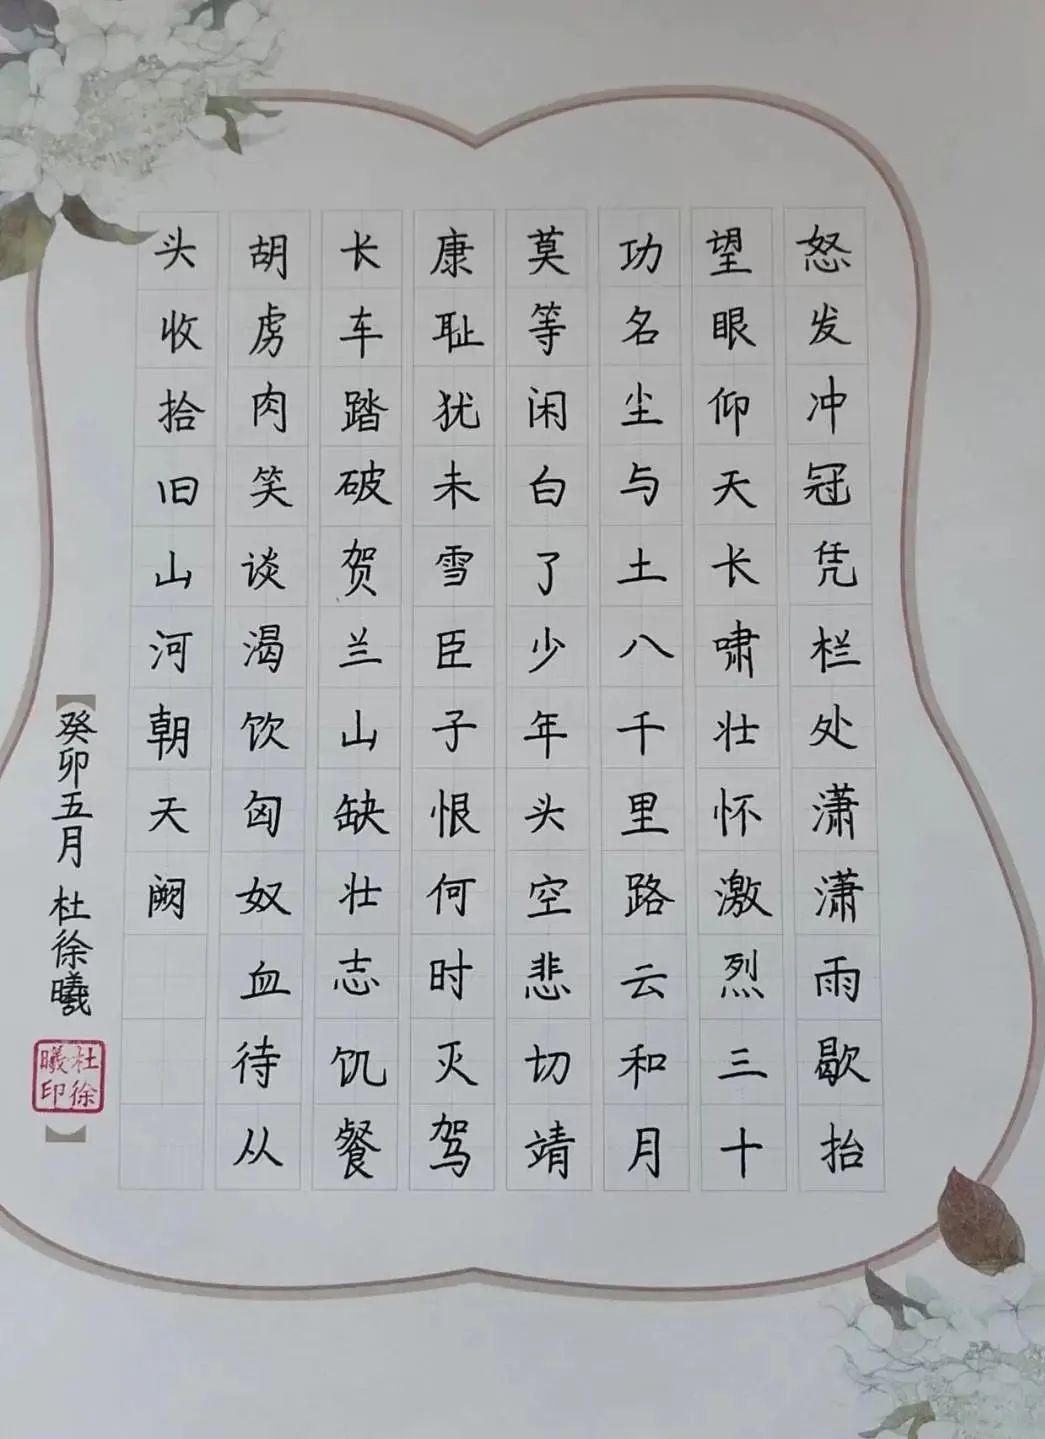 怒发冲冠凭栏处潇潇雨歇抬
望眼仰天长啸壮怀激烈三十
功名尘与土八千里路云和月
莫等闲白了少年头空悲切靖
康耻犹未雪臣子恨何时灭驾
长车踏破贺兰山缺壮志饥餐
胡虏肉笑谈渴饮匈奴血待从
头收拾旧山河朝天阙
癸卯五月 杜徐曦
杜徐
曦印